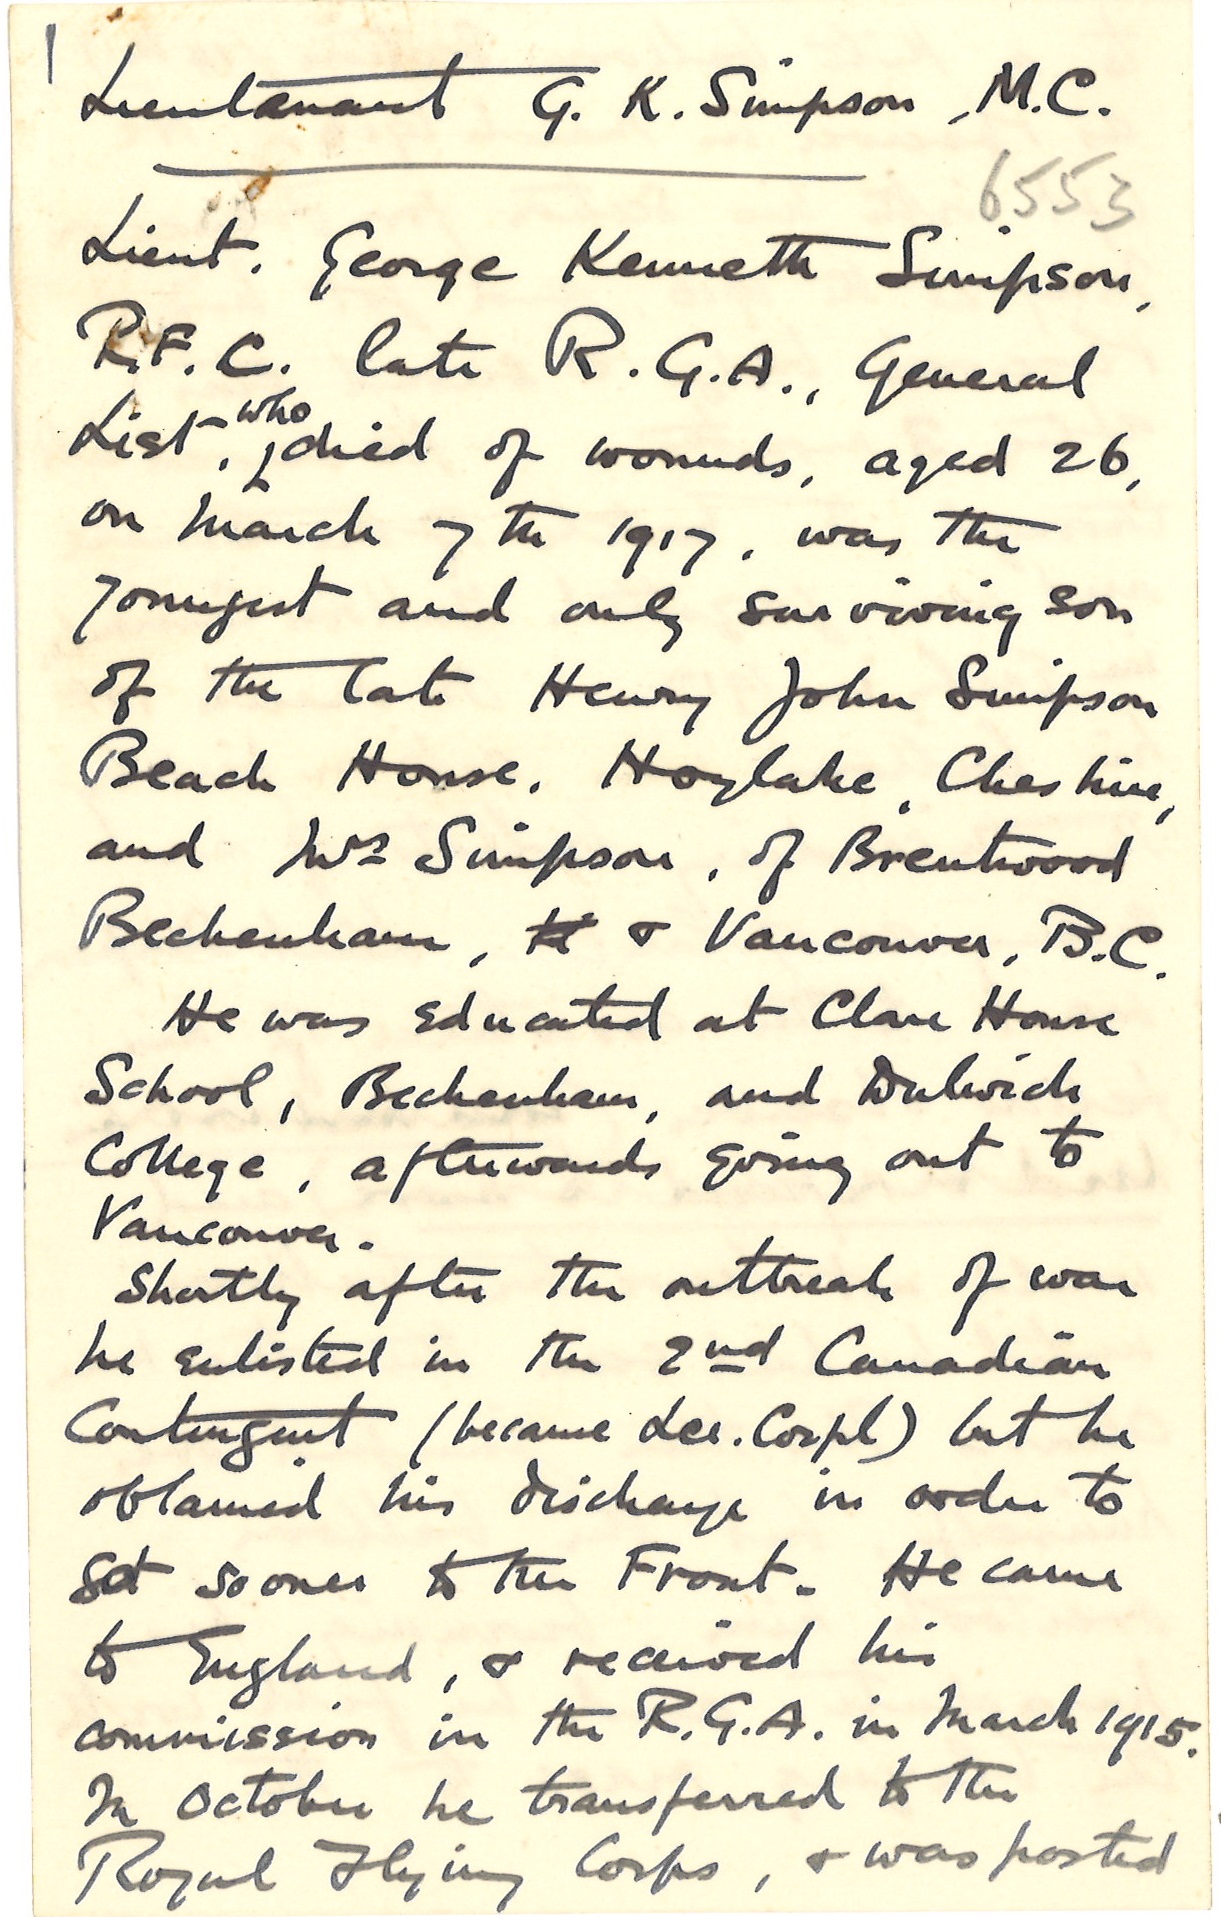 1
Lieutenant G. K. Simpson, M.C.
6553
Lieut. George Kenneth Simpson,
R.F.C. late R.G.A., General
List, who died of wounds, aged 26,
on March 7th 1917, was the
youngest and only surviving son
of the late Henry John Simpson
Beach House, Hoylake, Cheshire,
and Mrs Simpson, of Brentwood
Beckenham, & Vancouver, B.C.
He was educated at Clare House
School, Beckenham, and Dulwich
College, afterwards going out to
Vancouver.
Shortly after the outbreak of war
he enlisted in the 2nd Canadian
Contingent (became Lce. Corpl) but he
obtained his discharge in order to
get sooner to the Front. He came
to England, & received his
commission in the R.G.A. in March 1915.
In October he transferred to the
Royal Flying Corps, & was posted